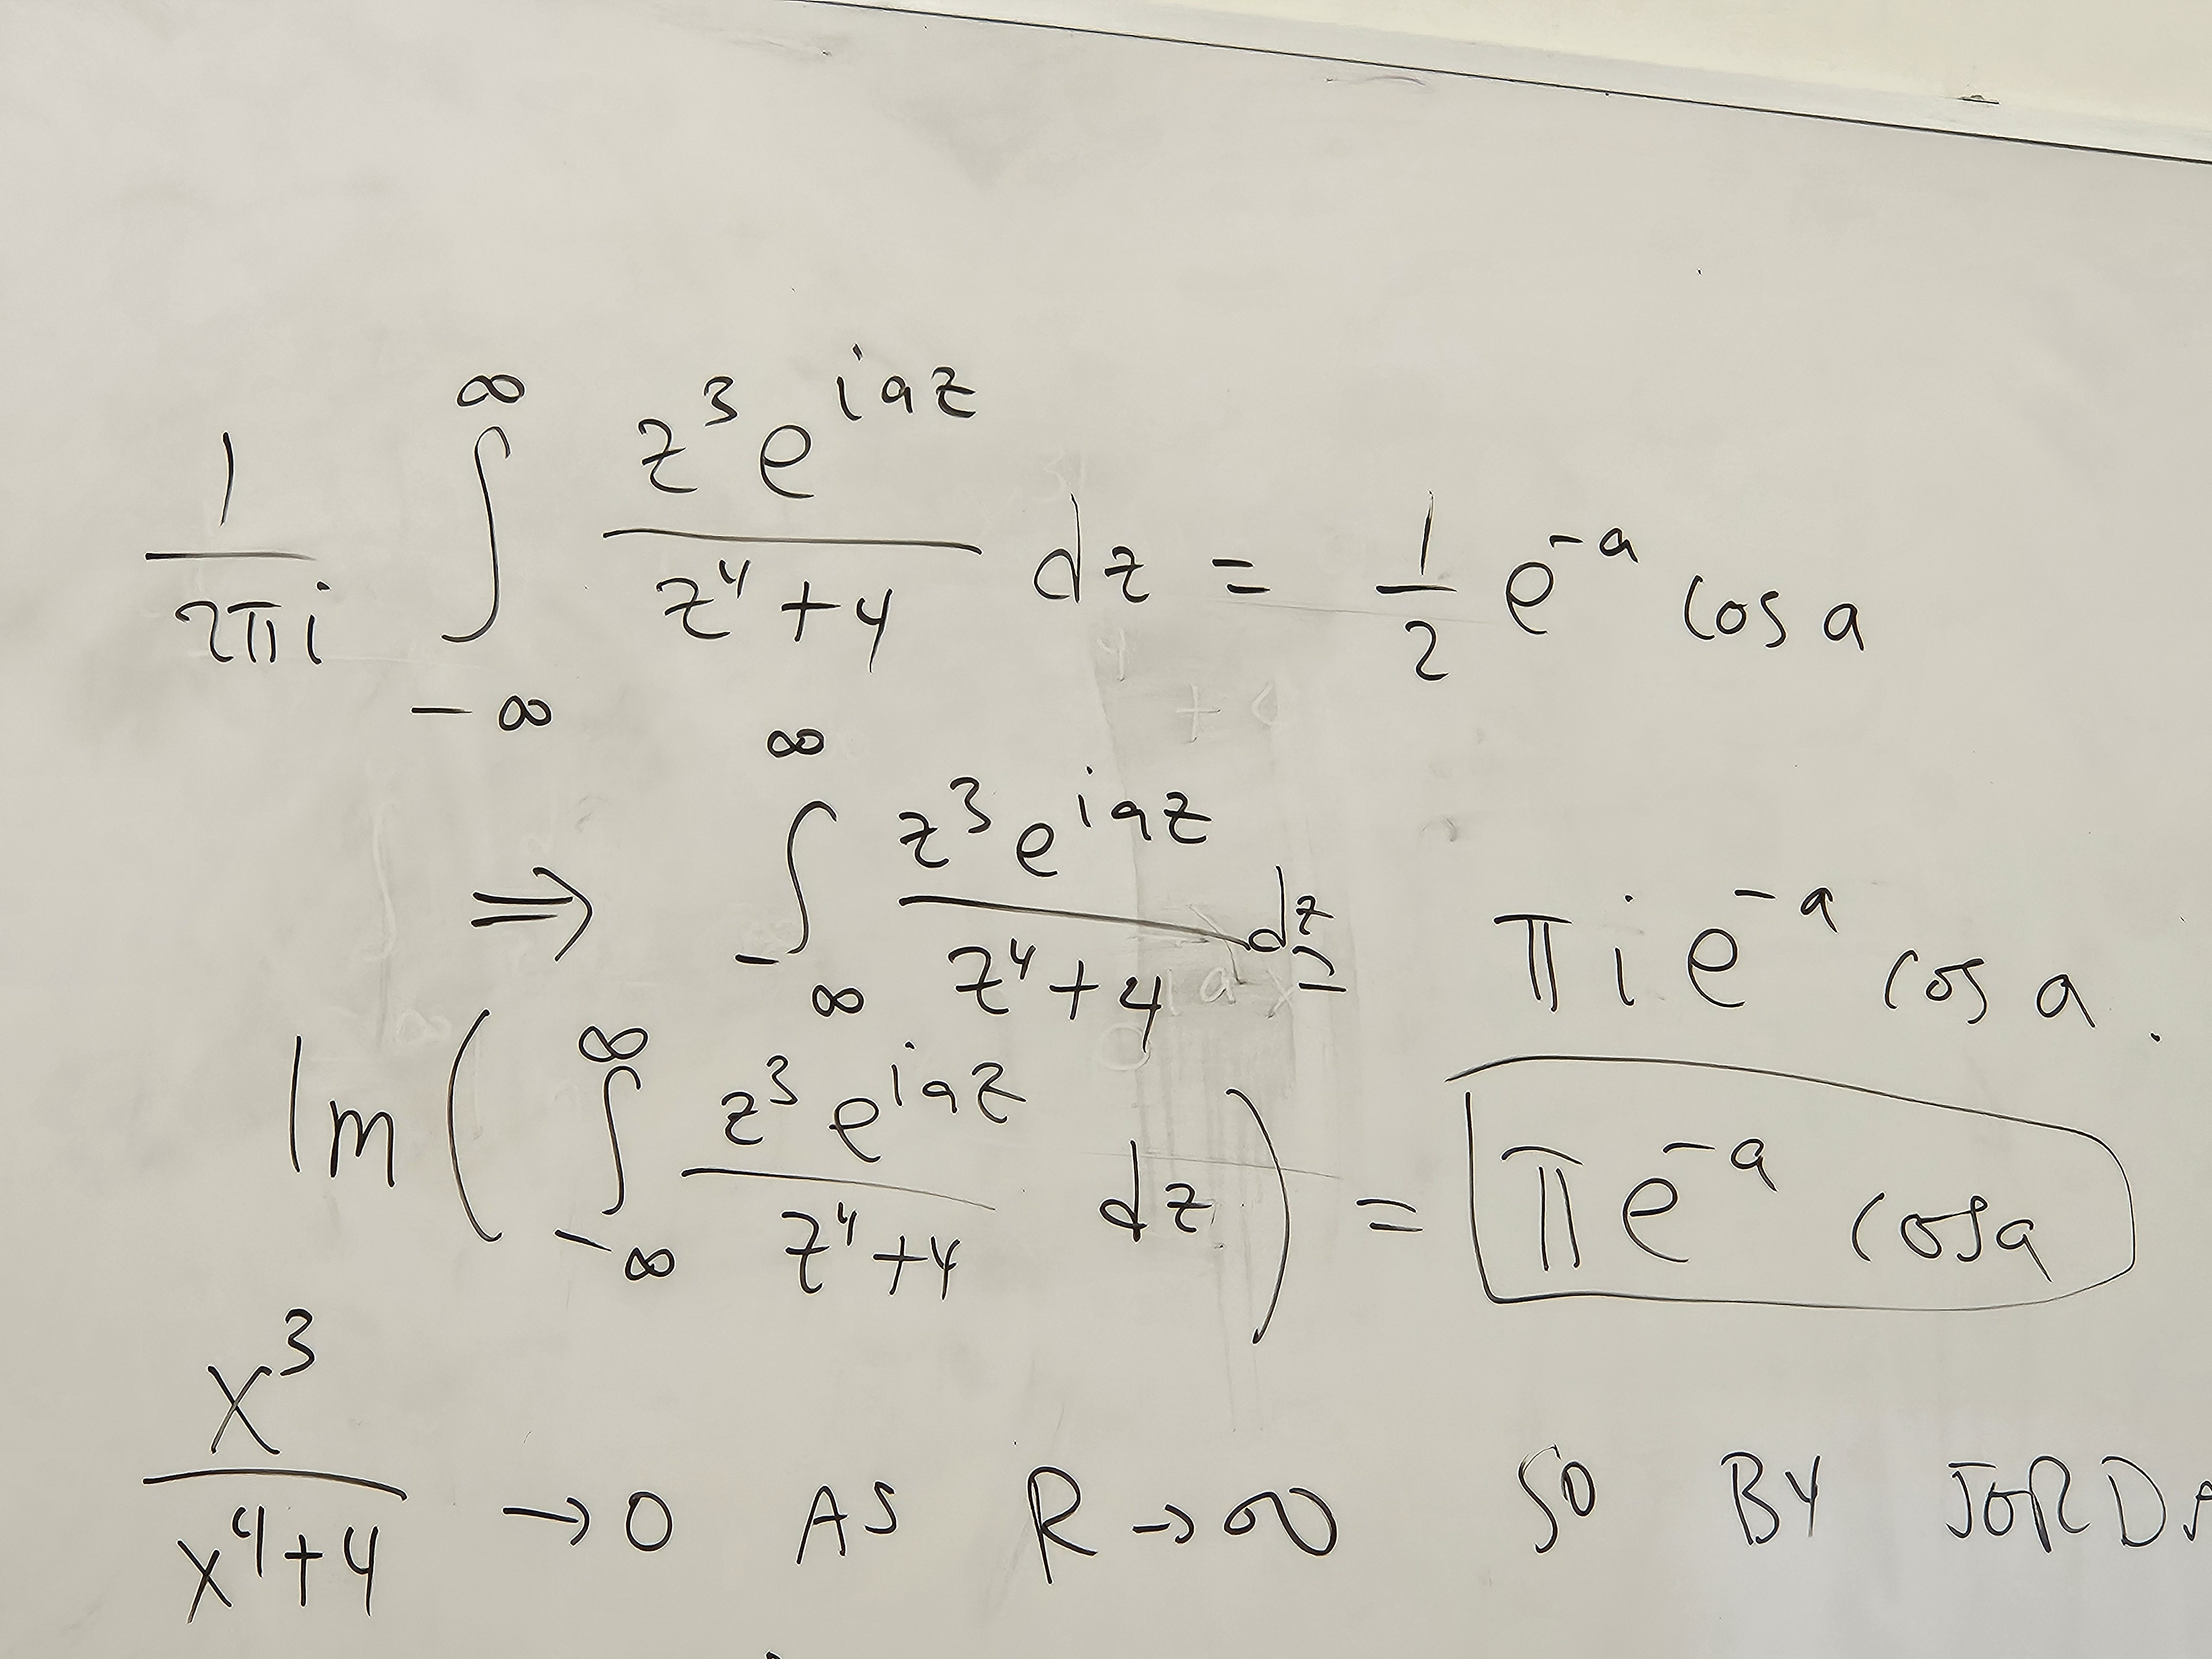 1/2πi ∫_{-∞}^{∞} z³e^{iaz}/z⁴+4 dz = 1/2 e^{-a} cos a
⇒ ∫_{-∞}^{∞} z³e^{iaz}/z⁴+4 dz = πi e^{-a} cos a.
Im(∫_{-∞}^{∞} z³e^{iaz}/z⁴+4 dz) = πe^{-a} cos a
x³/x⁴+4 → 0 AS R → ∞ SO BY